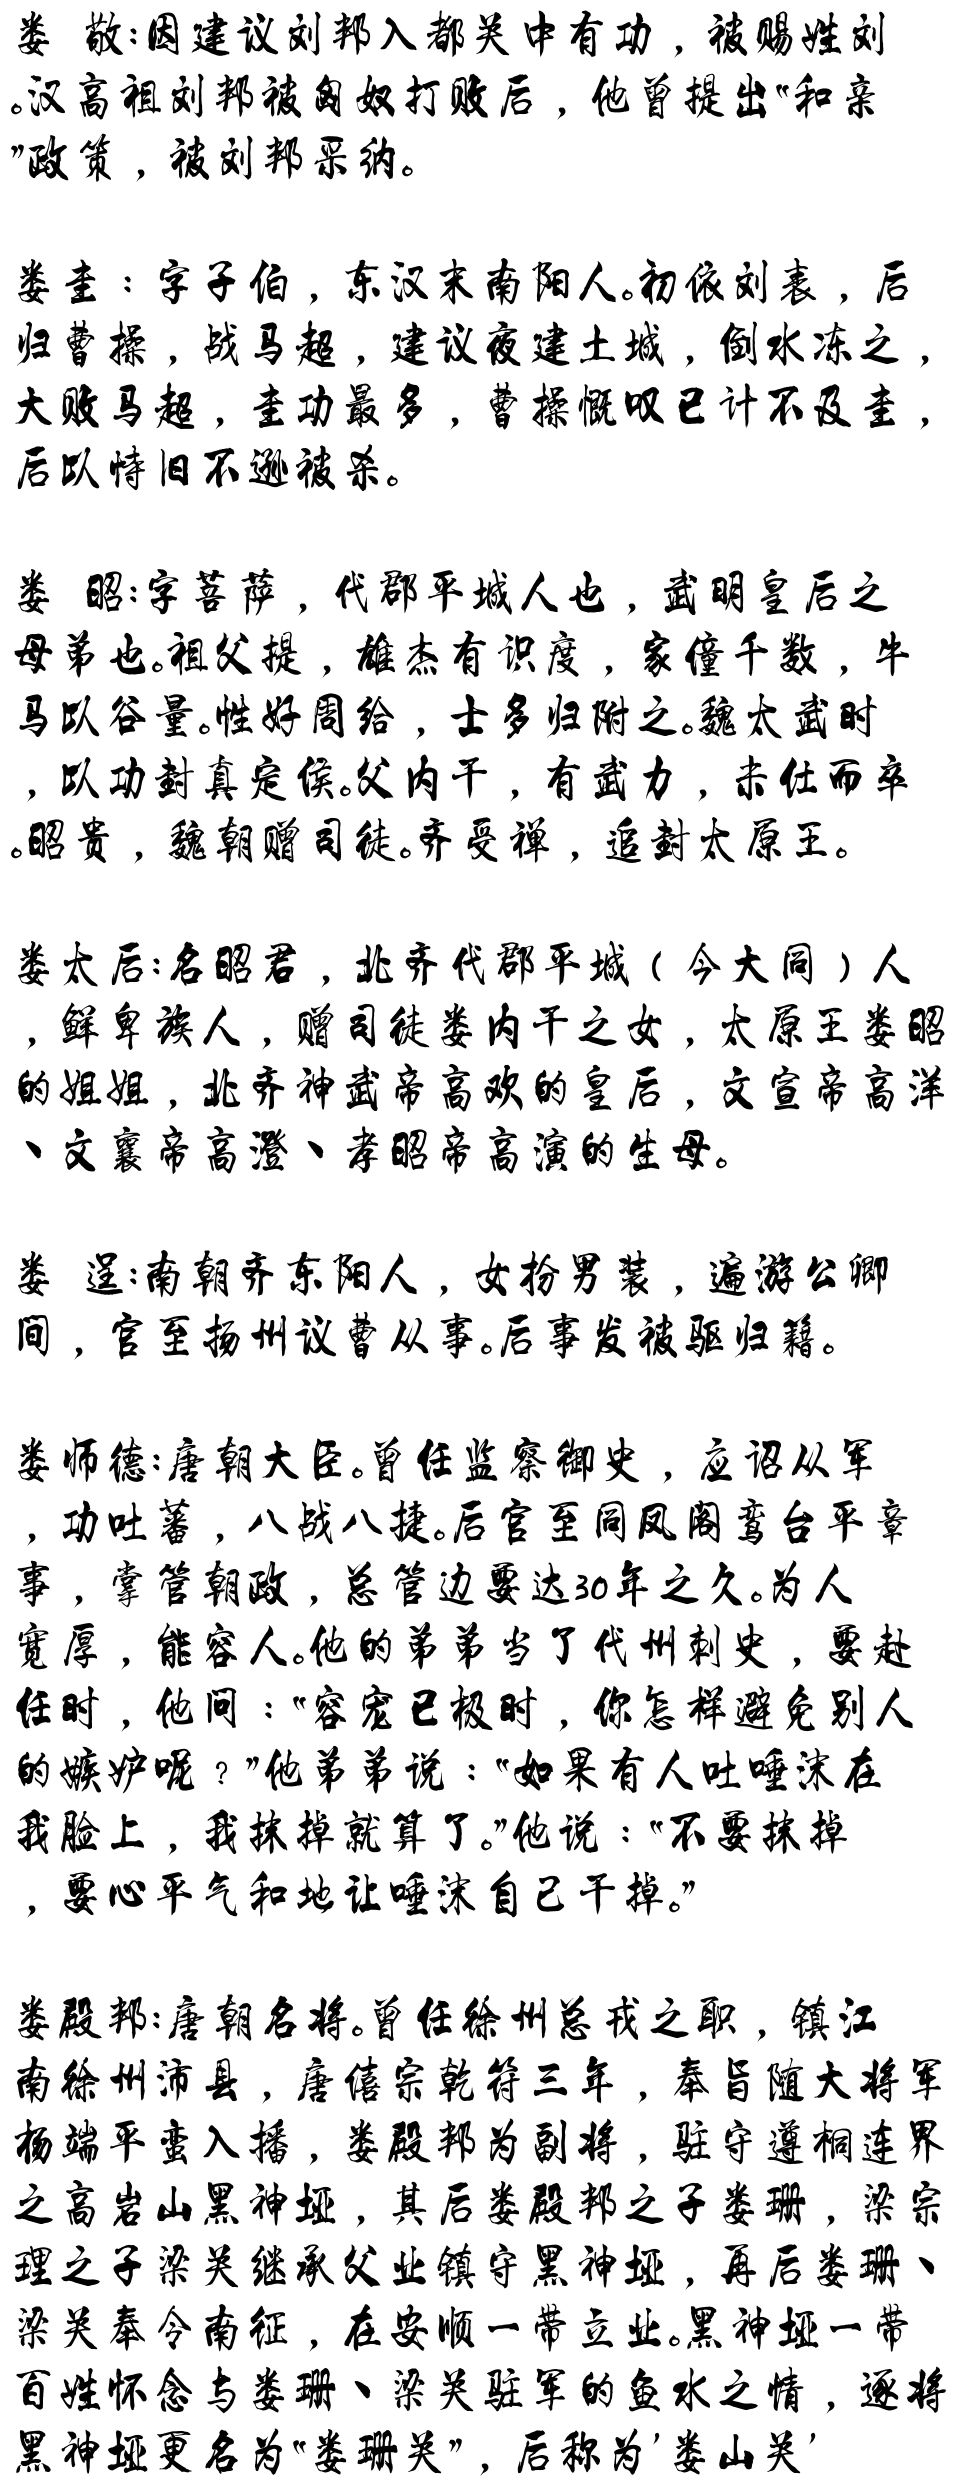 娄 敬:因建议刘邦入都关中有功，被赐姓刘
。汉高祖刘邦被匈奴打败后，他曾提出“和亲
”政策，被刘邦采纳。
娄圭：字子伯，东汉末南阳人。初依刘表，后
归曹操，战马超，建议夜建土城，倒水冻之，
大败马超，圭功最多，曹操慨叹己计不及圭，
后以恃旧不逊被杀。
娄 昭:字菩萨，代郡平城人也，武明皇后之
母弟也。祖父提，雄杰有识度，家僮千数，牛
马以谷量。性好周给，士多归附之。魏太武时
，以功封真定侯。父内干，有武力，未仕而卒
。昭贵，魏朝赠司徒。齐受禅，追封太原王。
娄太后:名昭君，北齐代郡平城（今大同）人
，鲜卑族人，赠司徒娄内干之女，太原王娄昭
的姐姐，北齐神武帝高欢的皇后，文宣帝高洋
、文襄帝高澄、孝昭帝高演的生母。
娄 逞:南朝齐东阳人，女扮男装，遍游公卿
间，官至扬州议曹从事。后事发被驱归籍。
娄师德:唐朝大臣。曾任监察御史，应诏从军
，功吐蕃，八战八捷。后官至同凤阁鸾台平章
事，掌管朝政，总管边要达30年之久。为人
宽厚，能容人。他的弟弟当了代州刺史，要赴
任时，他问：“容宠已极时，你怎样避免别人
的嫉妒呢？”他弟弟说：“如果有人吐唾沫在
我脸上，我抹掉就算了。”他说：“不要抹掉
，要心平气和地让唾沫自己干掉。”
娄殿邦:唐朝名将。曾任徐州总戎之职，镇江
南徐州沛县，唐僖宗乾符三年，奉旨随大将军
杨端平蛮入播，娄殿邦为副将，驻守遵桐连界
之高岩山黑神垭，其后娄殿邦之子娄珊，梁宗
理之子梁关继承父业镇守黑神垭，再后娄珊、
梁关奉令南征，在安顺一带立业。黑神垭一带
百姓怀念与娄珊、梁关驻军的鱼水之情，逐将
黑神垭更名为“娄珊关”，后称为'娄山关'